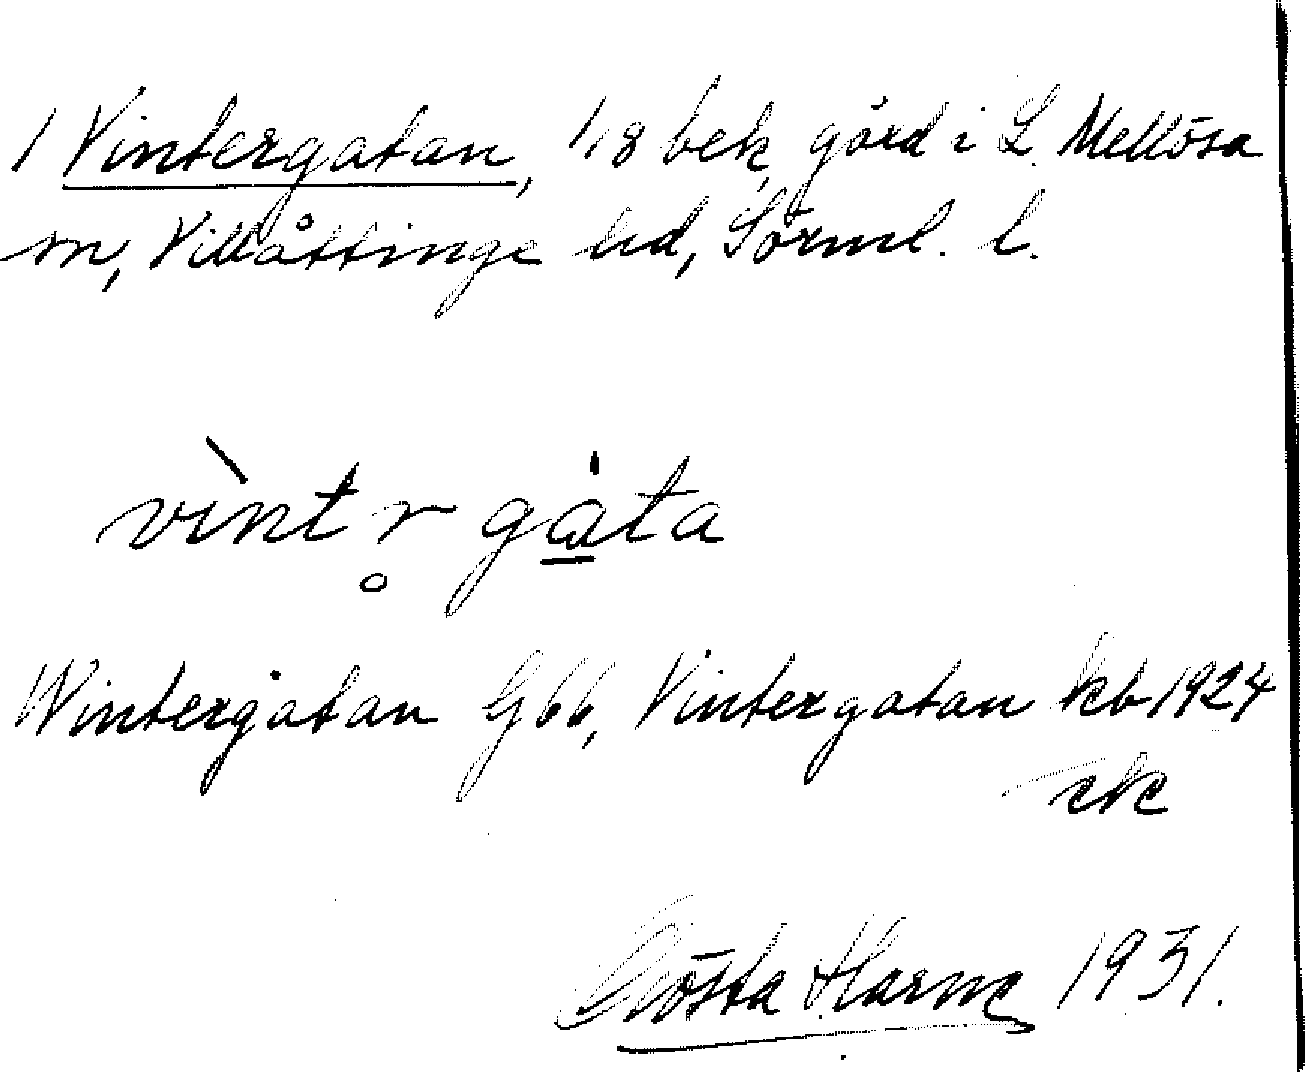 1 Vintergatan, 1/18 bek, gård i L. Mellösa
sn, Villåttinge hd, Sörml. l.
vìntr̥ gàta
Wintergatan G66, Vintergatan kb 1924
Gösta Harne 1931.